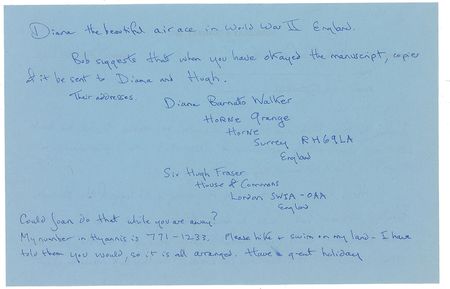 Diana the beautiful air ace in World War II England.
Bob suggests that when you have okayed the manuscript, copies
of it be sent to Diana and Hugh.
Their addresses.
Diana Barnato Walker
Horne Grange
Horne
Surrey RH69LA
England
Sir Hugh Fraser
House of Commons
London SW1A-0AA
England
Could Joan do that while you are away?
My number in Hyannis is 771-1233. Please hike & swim on my land - I have
told them you would, so it is all arranged. Have a great holiday